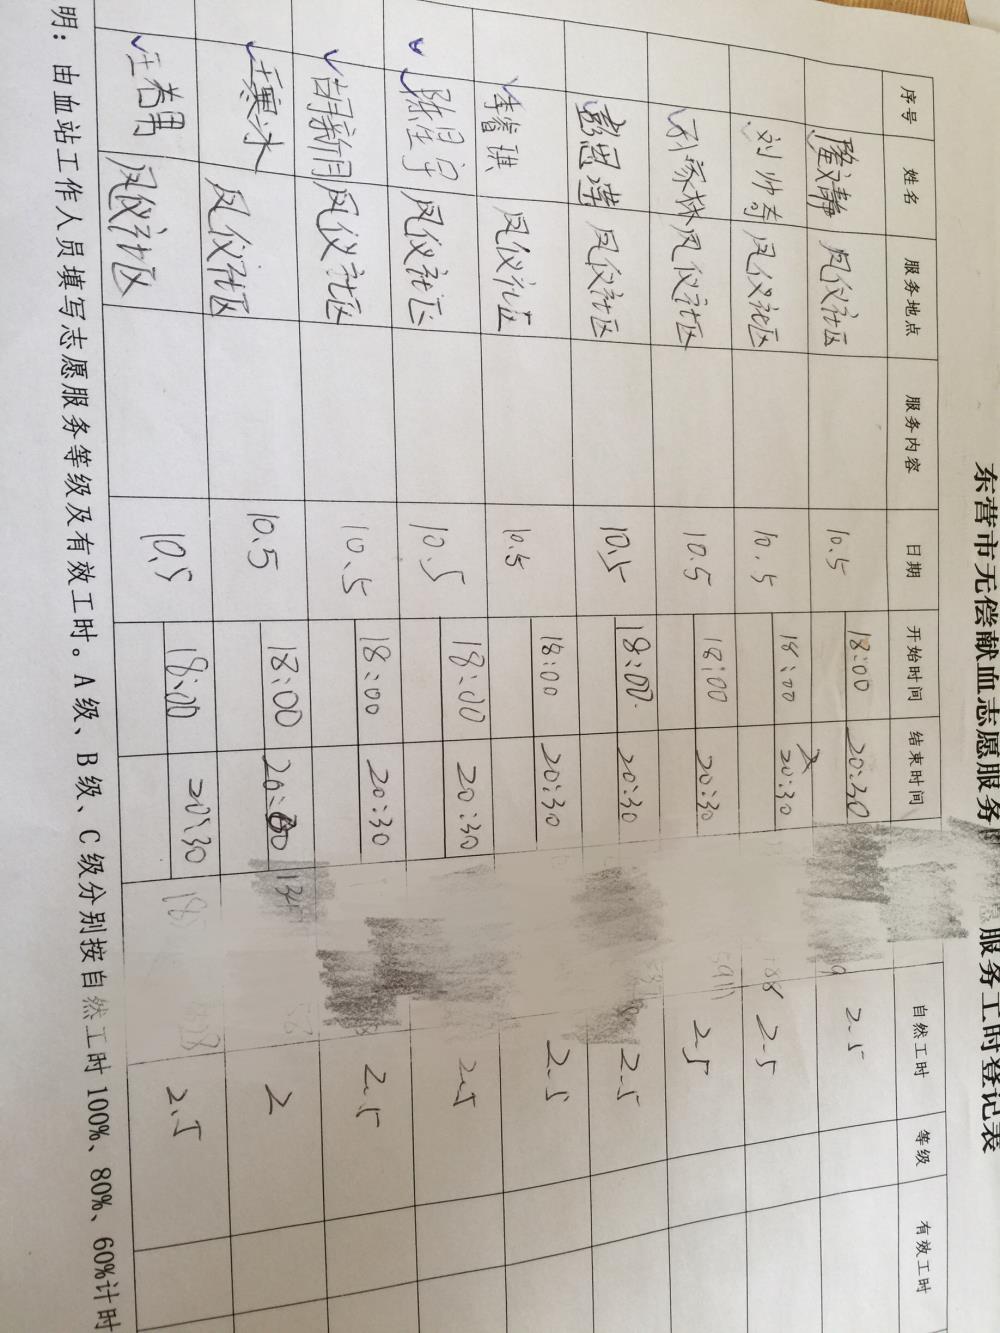 东营市无偿献血志愿服务 服务工时登记表
序号 姓名 服务地点 服务内容 日期 开始时间 结束时间 自然工时 等级 有效工时
隆文静 凤仪社区 10.5 18:00 20:30 2.5
刘帅奇 凤仪社区 10.5 18:00 20:30 2.5
林 凤仪社区 10.5 18:00 20:30 2.5
彭思 凤仪社区 10.5 18:00 20:30 2.5
李睿琪 凤仪社区 10.5 18:00 20:30 2.5
陈星宇 凤仪社区 10.5 18:00 20:30 2.5
胡新月 凤仪社区 10.5 18:00 20:30 2.5
王寒冰 凤仪社区 10.5 18:00 2
汪若男 凤仪社区 10.5 18:00 20:30 2.5
明：由血站工作人员填写志愿服务等级及有效工时。A级、B级、C级分别按自然工时100%、80%、60%计时